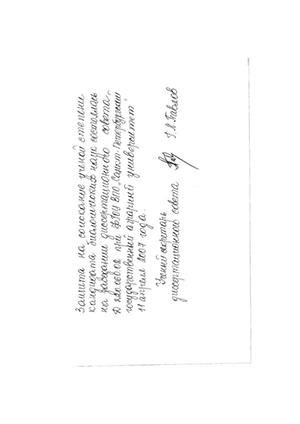 Защита на соискание учёной степени
кандидата биологических наук состоялась
на заседании диссертационного совета
Д 220.060.02 при ФГОУ ВПО „Санкт-Петербургский
государственный аграрный университет"
11 апреля 2007 года.
Учёный секретарь
диссертационного совета Г.А. Павлов